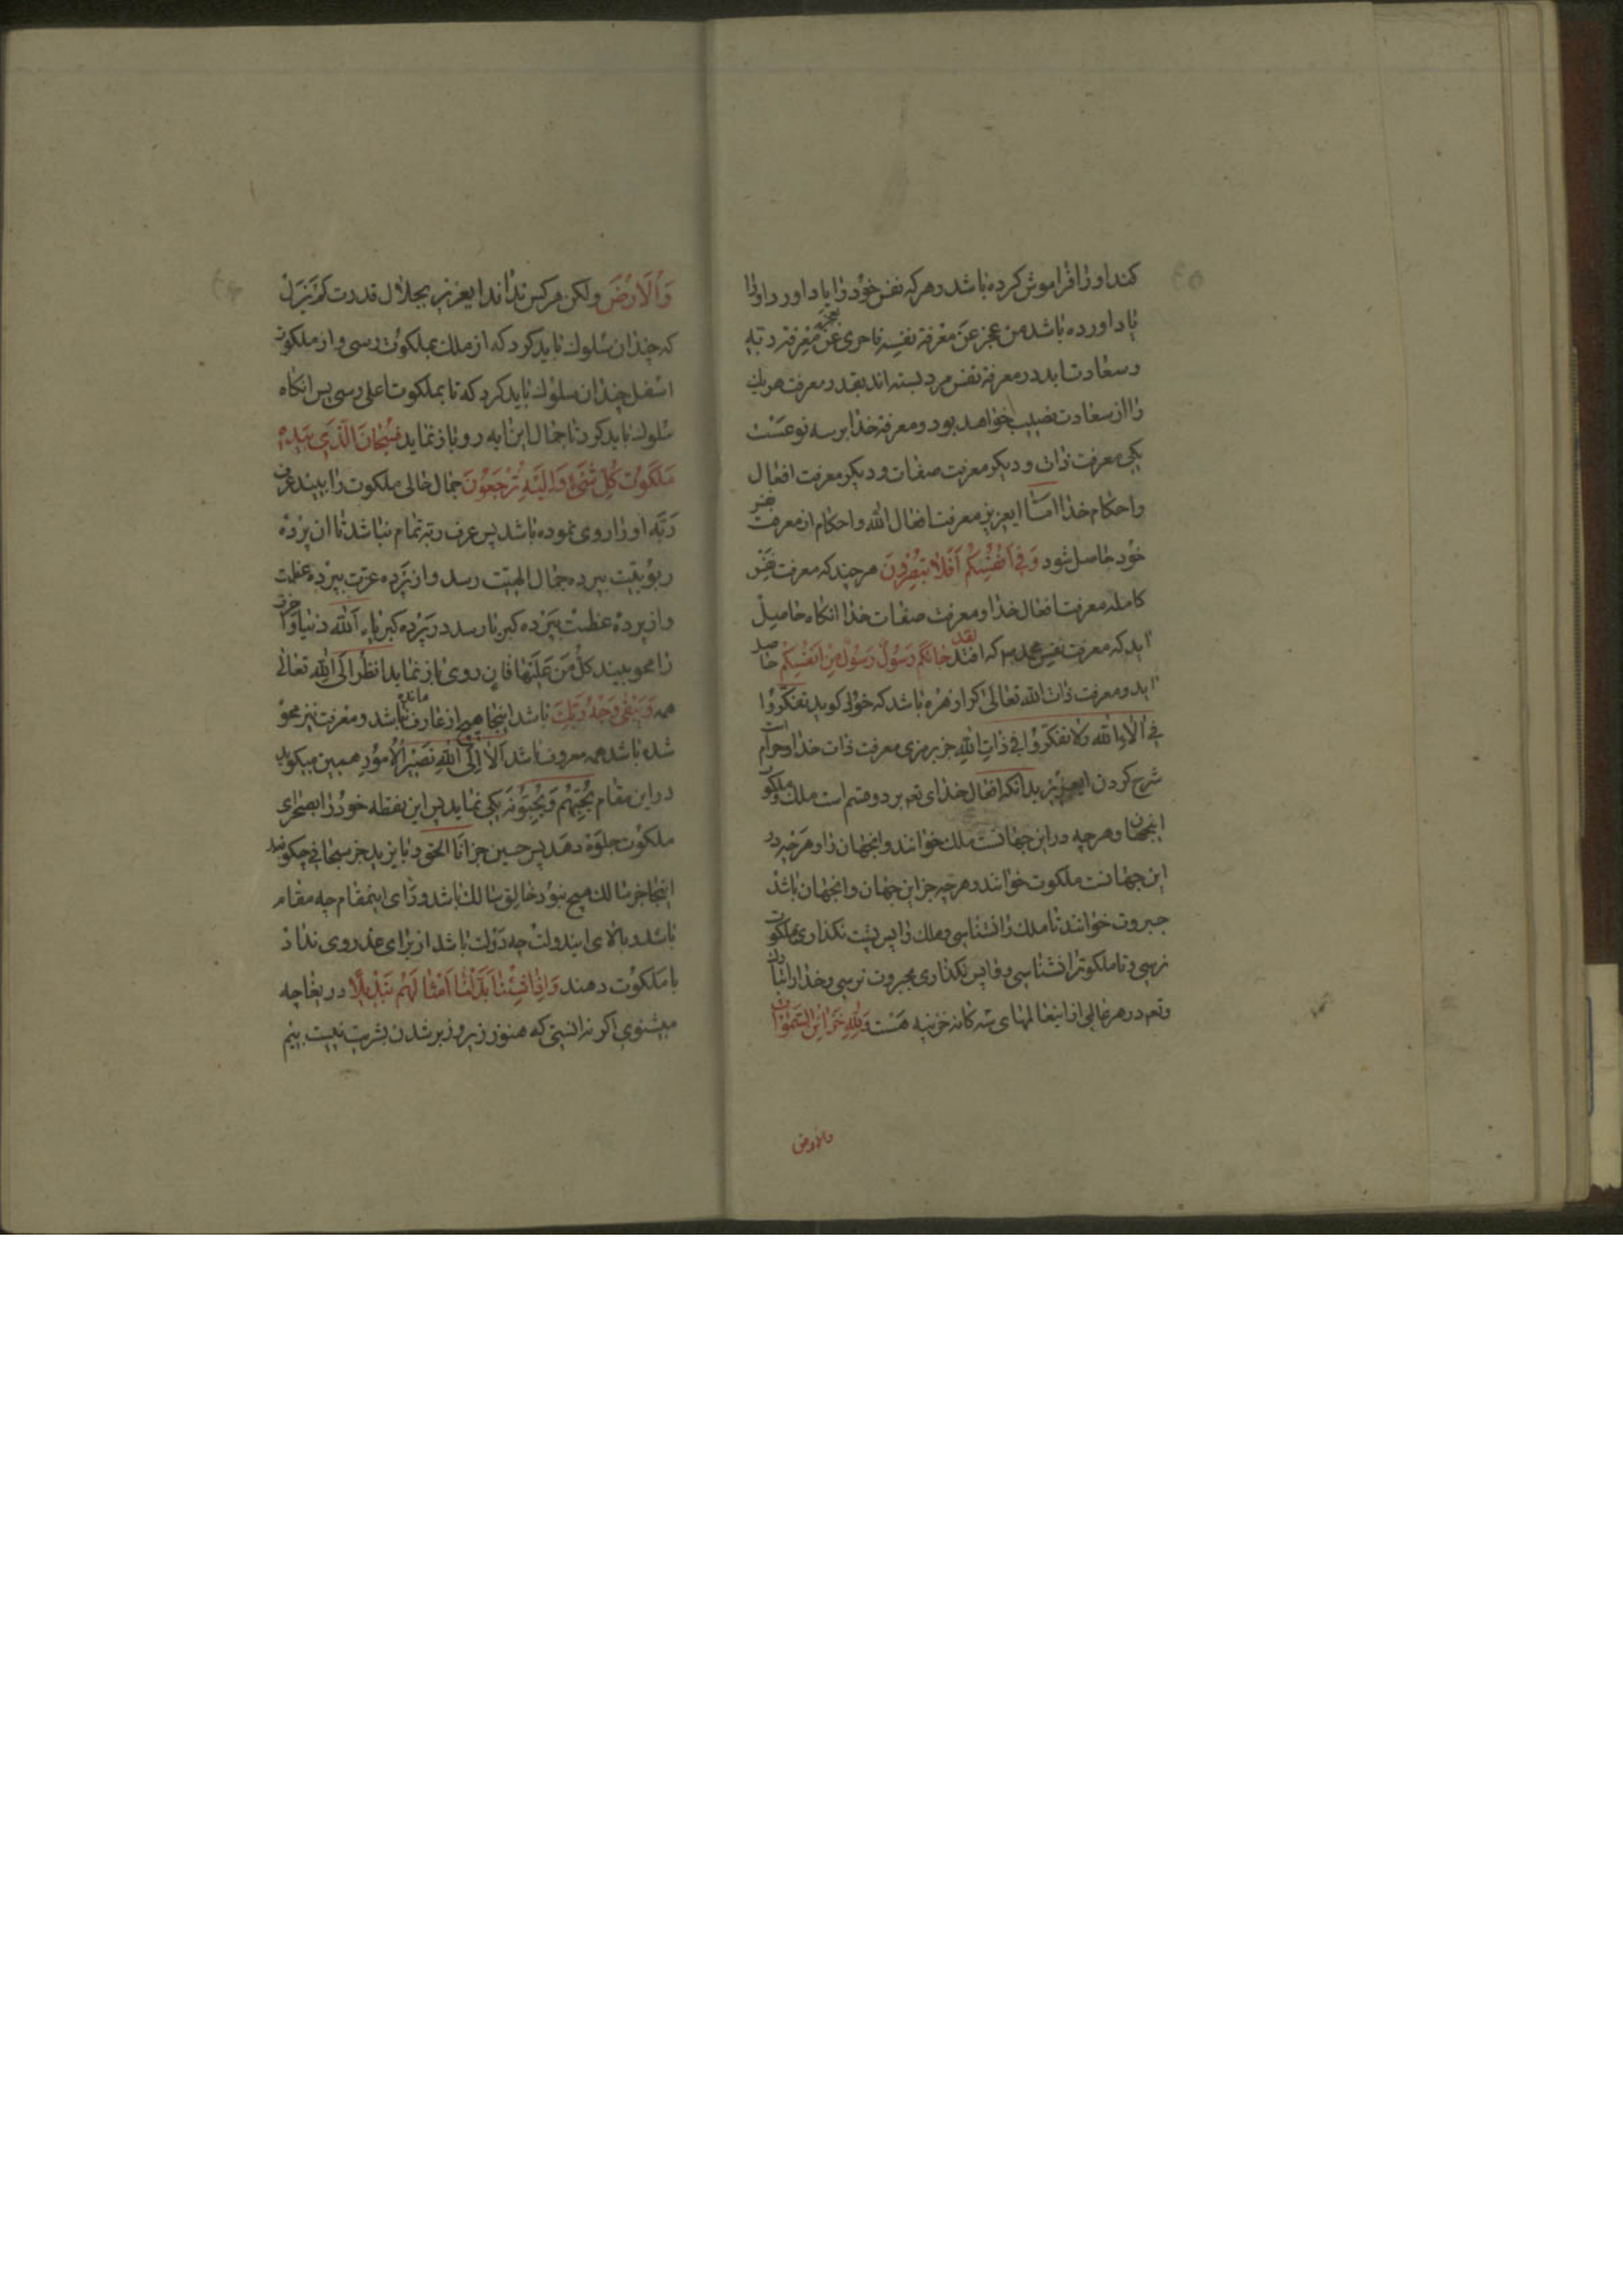 کند او را فراموش کرده باشد و هر که نفس خود را یاد آورد او را
یاد آورده باشد من عجز عن معرفة نفسه فاحری عن یعجز معرفة ربه
و سعادت ابد در معرفة نفس مرد بسته اند بقدر معرفت هر یک
را از سعادت نصیب خواهد بود و معرفة خدا بر سه نوعست
یکی معرفت ذات و دیگر معرفت صفات و دیگر معرفت افعال
و احکام خدا اما ایعزیز معرفت افعال الله و احکام او معرفت نفس
خود حاصل شود وَفی اَنْفُسِکُمْ اَفَلا تُبْصِرُونَ هر چند که معرفت نفس
کاملتر معرفت افعال خدا و معرفت صفات خدا آنگاه حاصل
آید که معرفت نفس محمد م که افتد لقد جائکم رسول رسول من انفسکم حاصل
آید و معرفت ذات الله تعالی کرا زهره باشد که خود گوید تفکّروا
فی آلاء الله ولا تفکّروا فی ذات الله جز برمزی معرفت ذات خدا حرام است
شرح کردن ایعزیز بدانکه افعال خدای تع بر دو قسم است ملک و ملکوت
اینجهان و هر چه در این جهانست ملک خوانند و آنجهان را و هر چه در
این جهانست ملکوت خوانند و هر چه جز این جهان و آنجهان باشد
جبروت خوانند تا ملک را نشناسی و ملک را پس پشت نگذاری بملکوت
نرسی و تا ملکوترا نشناسی و فاپس نگذاری بجبروت نرسی و خدا را
وتع در هر عالمی از این عالمهای سه گانه خزینه هست وَلِلّهِ خَزائِنُ السَّمواتِ
والارض
وَالْاَرْضَ ولکن هر کس نداند ایعزیز بجلال قدرت لم یزل
که چندان سلوک باید کرد که از ملک بملکوت رسی و از ملکوت
اسفل چندان سلوک باید کرد که تا بملکوت اعلی رسی پس آنگاه
سلوک باید کرد تا جمال این آیه رو باز نماید فسبحان الّذی بیده
ملکوت کلّ شیء و الیه ترجعون جمال خالی ملکوت را بیند عرف
ربّه او را روی نموده باشد پس عرف ربّه تمام نباشد تا از پرده
ربوبیت بپرده جمال الهیت رسد و از پرده عزت بپرده عظمت
و از پردهٔ عظمت بپرده کبریا رسد در پرده کبریاء الله دنیا و آخرت
را محو بیند کلّ من علیها فان روی باز نماید انظر الی الله تعالی
همه وَیَبْقی وَجْهُ رَبِّکَ باشد اینجا هیچ از عارف نمانده باشد و معرفت نیز محو
شده باشد همه معروف باشد الا الی الله تصیر الامور همین میگوید
در این مقام یحبّهم و یحبّونه یکی نماید پس این نقطه خود را بصحرای
ملکوت جلوه دهد پس حسین جز انا الحق و بایزید جز سبحانی چگونه گوید
اینجا جز سالک هیچ نبود خالق سالک باشد ورای اینمقام چه مقام
باشد و بالای ایندولت چه دولت باشد از برای خدا روی ندارد
با ملکوت دهند وَاِذا شِئْنا بَدَّلْنا اَمْثالَهُمْ تَبْدیلاً دریغا چه
میشنوی اگر ندانستی که هنوز زیر و زبر شدن بشریت نیست بینم